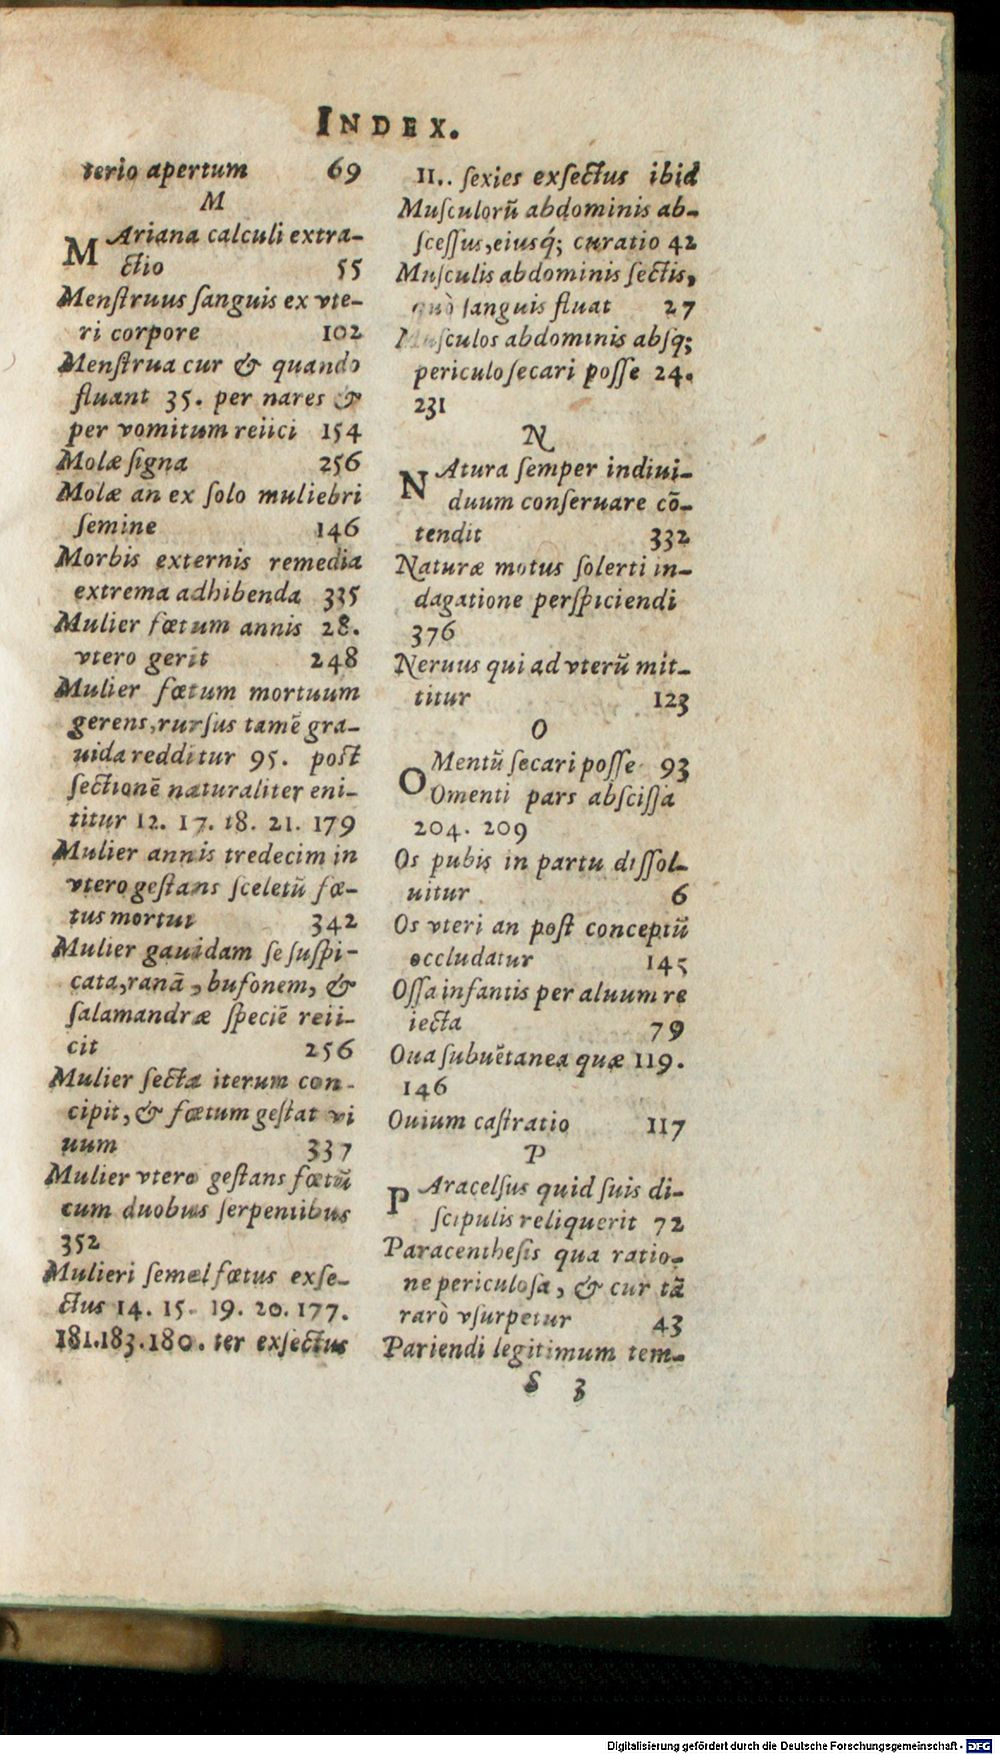 INDEX.
terio apertum 69
M
MAriana calculi extra-
ctio 55
Menſtruus ſanguis ex vte-
ri corpore 102
Menſtrua cur & quando
fluant 35. per nares &
per vomitum reiici 154
Molæ ſigna 256
Molæ an ex ſolo muliebri
ſemine 146
Morbis externis remedia
extrema adhibenda 335
Mulier fœtum annis 28.
vtero gerit 248
Mulier fœtum mortuum
gerens, rurſus tamē gra-
uida redditur 95. poſt
ſectionē naturaliter eni-
titur 12. 17. 18. 21. 179
Mulier annis tredecim in
vtero geſtans ſceletū fœ-
tus mortui 342
Mulier gauidam ſe ſuſpi-
cata, ranā, bufonem, &
ſalamandræ ſpeciē reii-
cit 256
Mulier ſecta iterum con-
cipit, & fœtum geſtat vi
uum 337
Mulier vtero geſtans fœtū
cum duobus ſerpentibus
352
Mulieri ſemel fœtus exſe-
ctus 14. 15. 19. 20. 177.
181. 183. 180. ter exſectus
11.. ſexies exſectus ibid
Muſculorū abdominis ab-
ſceſſus, eiusq́; curatio 42
Muſculis abdominis ſectis,
quò ſanguis fluat 27
Muſculos abdominis abſq;
periculo ſecari poſſe 24.
231
N
NAtura ſemper indiui-
duum conſeruare cō-
tendit 332
Naturæ motus ſolerti in-
dagatione perſpiciendi
376
Neruus qui ad vterū mit-
titur 123
O
OMentū ſecari poſſe 93
Omenti pars abſciſſa
204. 209
Os pubis in partu diſſol-
uitur 6
Os vteri an poſt conceptū
occludatur 145
Oſſa infantis per aluum re
iecta 79
Oua ſubuētanea quæ 119.
146
Ouium caſtratio 117
P
PAracelſus quid ſuis di-
ſcipulis reliquerit 72
Paracentheſis qua ratio-
ne periculoſa, & cur tā
rarò vſurpetur 43
Pariendi legitimum tem-
S 3
Digitalisierung gefördert durch die Deutsche Forschungsgemeinschaft - DFG